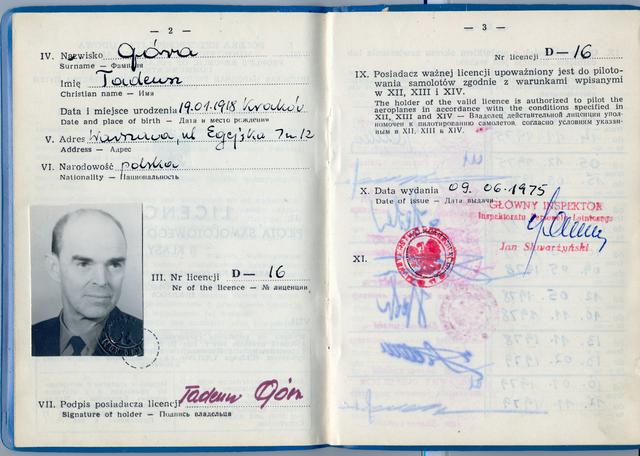 — 2 —
IV. Nazwisko Góra
Surname — Фамилия
Imię Tadeusz
Christian name — Имя
Data i miejsce urodzenia 19.01.1918 Kraków
Date and place of birth — Дата и место рождения
V. Adres Warszawa, ul Egejska 7 m 12
Address — Адрес
VI. Narodowość polska
Nationality — Национальность
III. Nr licencji D — 16
Nr of the licence — № лицензии
VII. Podpis posiadacza licencji Tadeusz Góra
Signature of holder — Подпись владельца
— 3 —
Nr licencji D — 16
IX. Posiadacz ważnej licencji upoważniony jest do pilotowania samolotów zgodnie z warunkami wpisanymi
w XII, XIII i XIV.
The holder of the valid licence is authorized to pilot the
aeroplanes in accordance with the conditions specified in
XII, XIII and XIV — Владелец действительной лицензии уполномочен к пилотированию самолетов, согласно условиям указанным в XII, XIII и XIV.
X. Data wydania 09. 06. 1975
Date of issue — Дата выдачи
GŁÓWNY INSPEKTOR
Inspektoratu
Lotniczego
Jan Skwarzyński
XI.